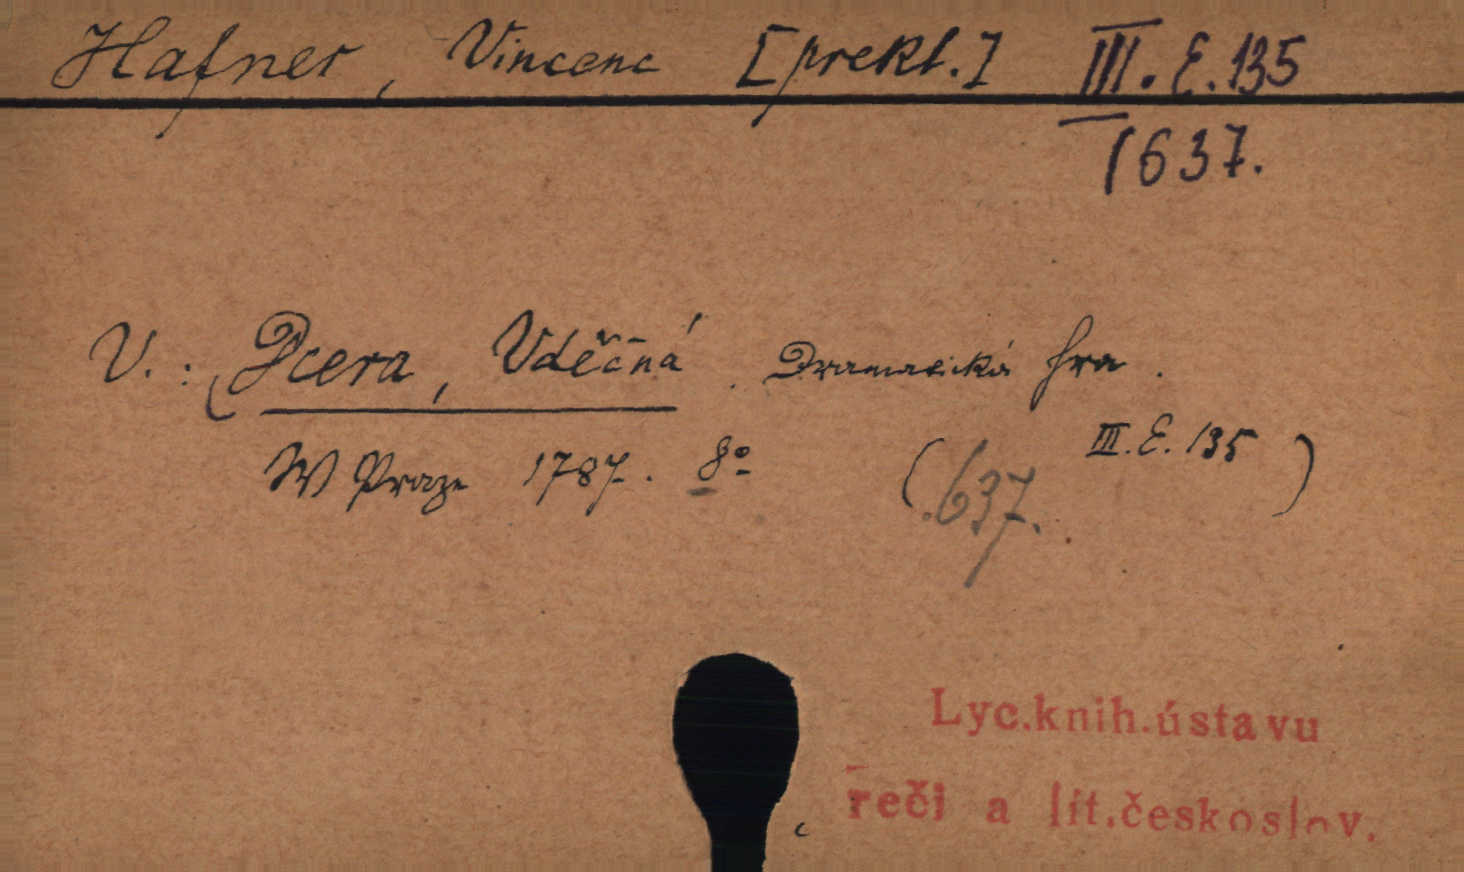 Hafner, Vincenc [prekl.] III. E. 135
1637.
V.: Dcera, Vděčná. Dramatická hra.
W Praze 1787. 8°
(637. III. E. 135)
Lyc.knih.ústavu
reči a lit.českoslov.